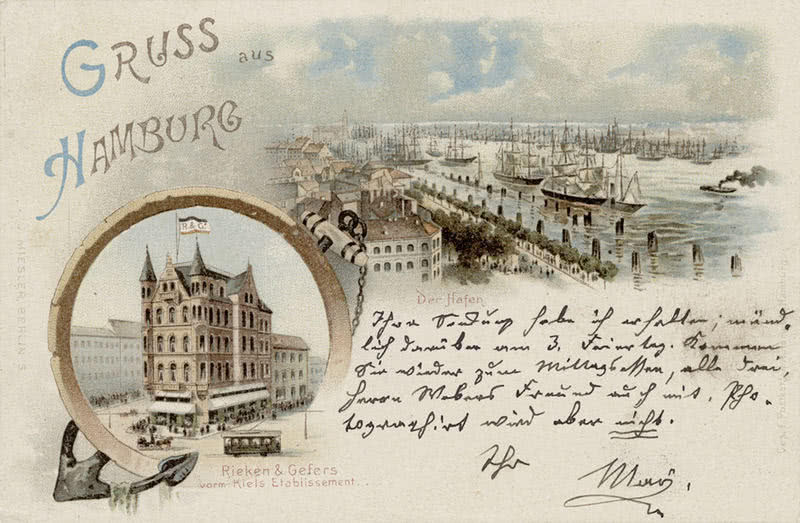 GRUSS aus
HAMBURG
R & G.
Der Hafen
Ihre Sendung habe ich erhalten; münd-
lich darüber am 3. Feiertag. Kommen
Sie wieder zum Mittagessen, alle drei,
Herrn Webers Freund auch mit. Pho-
tographirt wird aber nicht.
Ihr
Rieken & Gefers
vorm. Kiels Etablissement.
MIESLER BERLIN S.